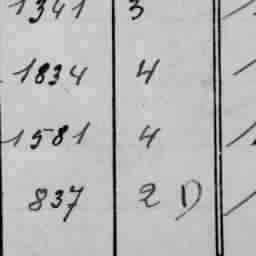 1341 3
1834 4
1581 4
837 2 D